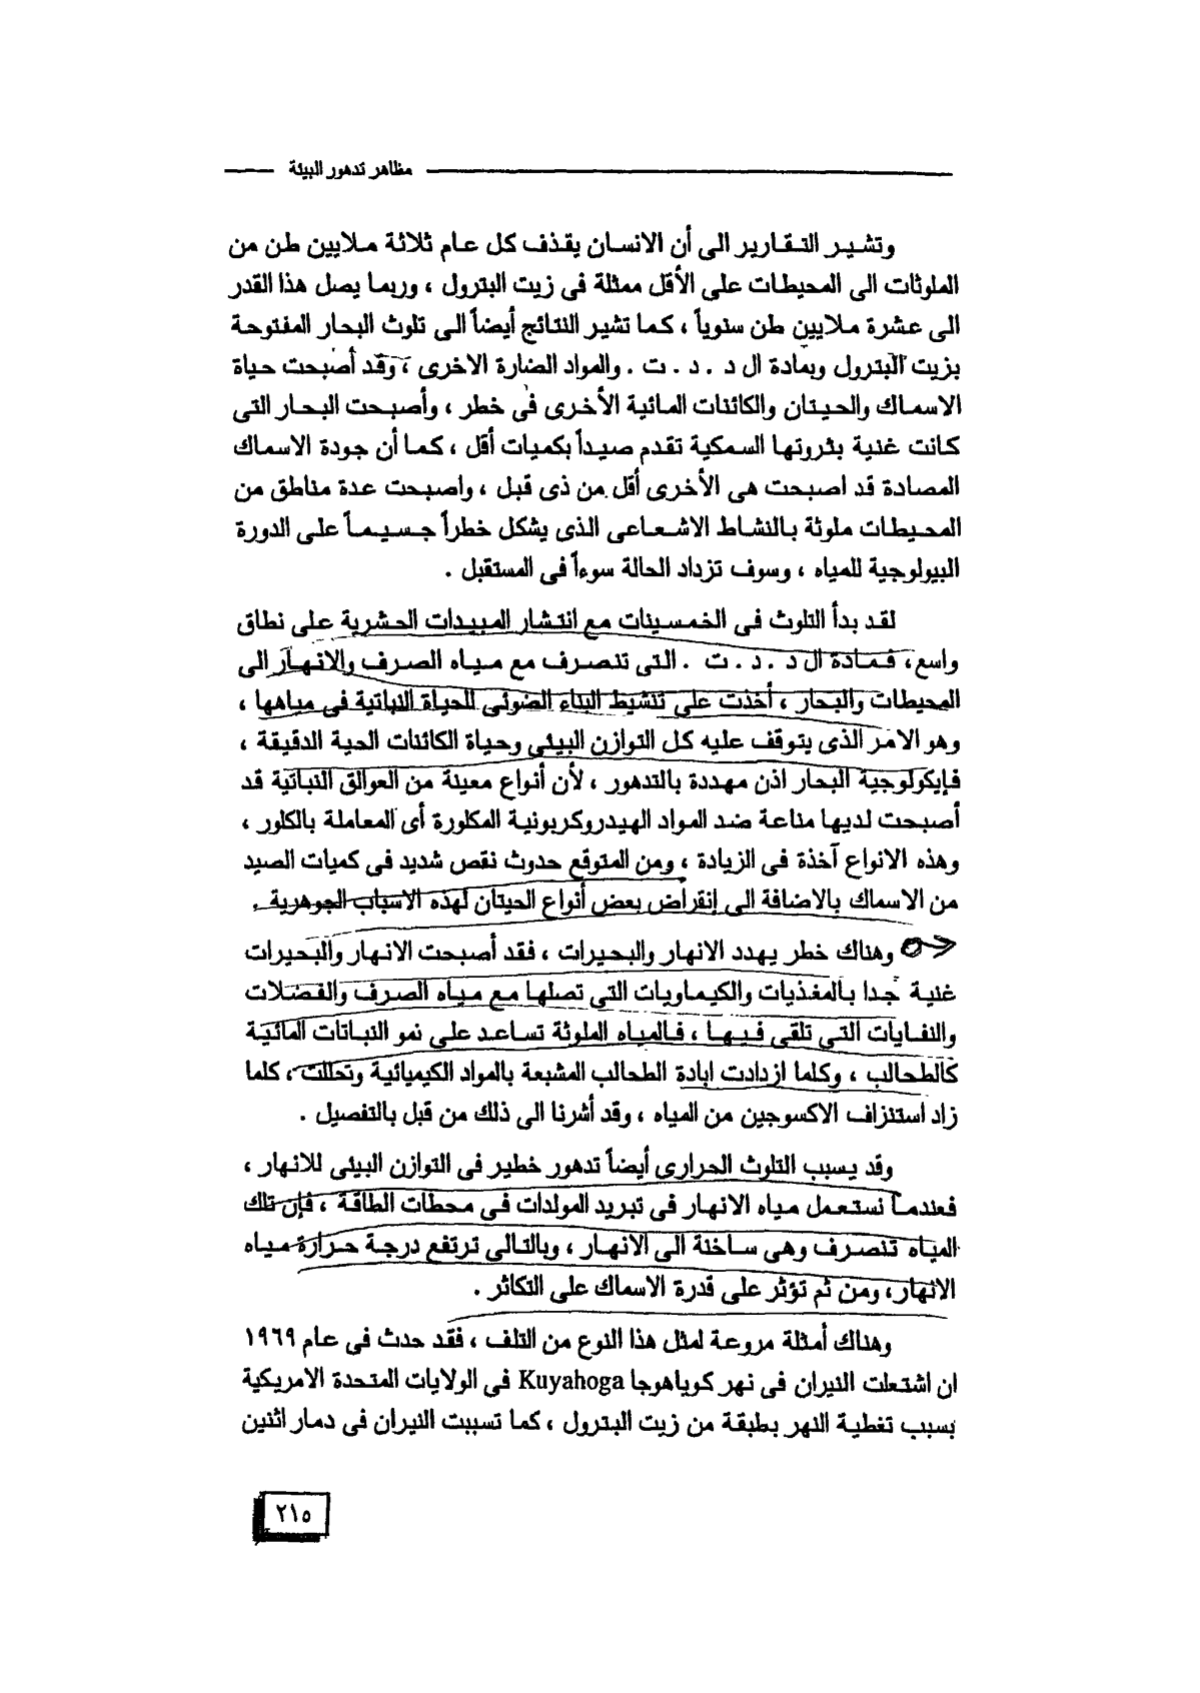 مظاهر تدهور البيئة
وتشير التقارير الى أن الانسان يقذف كل عام ثلاثة ملايين طن من
الملوثات الى المحيطات على الأقل ممثلة فى زيت البترول ، وربما يصل هذا القدر
الى عشرة ملايين طن سنوياً ، كما تشير النتائج أيضاً الى تلوث البحار المفتوحة
بزيت البترول وبمادة ال د . د . ت . والمواد الضارة الاخرى ، وقد أصبحت حياة
الاسماك والحيتان والكائنات المائية الأخرى فى خطر ، وأصبحت البحار التى
كانت غنية بثروتها السمكية تقدم صيداً بكميات أقل ، كما أن جودة الاسماك
المصادة قد اصبحت هى الأخرى أقل من ذى قبل ، واصبحت عدة مناطق من
المحيطات ملوثة بالنشاط الاشعاعى الذى يشكل خطراً جسيماً على الدورة
البيولوجية للمياه ، وسوف تزداد الحالة سوءاً فى المستقبل .
لقد بدأ التلوث فى الخمسينات مع انتشار المبيدات الحشرية على نطاق
واسع، فمادة ال د . د . ت . التى تنصرف مع مياه الصرف والانهار الى
المحيطات والبحار ، أخذت على تنشيط البناء الضوئى للحياة النباتية فى مياهها ،
وهو الامر الذى يتوقف عليه كل التوازن البيئى وحياة الكائنات الحية الدقيقة ،
فإيكولوجية البحار اذن مهددة بالتدهور ، لأن أنواع معينة من العوالق النباتية قد
أصبحت لديها مناعة ضد المواد الهيدروكربونية المكلورة أى المعاملة بالكلور ،
وهذه الانواع آخذة فى الزيادة ، ومن المتوقع حدوث نقص شديد فى كميات الصيد
من الاسماك بالاضافة الى إنقراض بعض أنواع الحيتان لهذه الاسباب الجوهرية .
وهناك خطر يهدد الانهار والبحيرات ، فقد أصبحت الانهار والبحيرات
غنية جدا بالمغذيات والكيماويات التى تصلها مع مياه الصرف والفضلات
والنفايات التى تلقى فيها ، فالمياه الملوثة تساعد على نمو النباتات المائية
كالطحالب ، وكلما ازدادت ابادة الطحالب المشبعة بالمواد الكيميائية وتحللت ، كلما
زاد استنزاف الاكسوجين من المياه ، وقد أشرنا الى ذلك من قبل بالتفصيل .
وقد يسبب التلوث الحرارى أيضاً تدهور خطير فى التوازن البيئى للانهار ،
فعندما نستعمل مياه الانهار فى تبريد المولدات فى محطات الطاقة ، فإن تلك
المياه تنصرف وهى ساخنة الى الانهار ، وبالتالى ترتفع درجة حرارة مياه
الانهار، ومن ثم تؤثر على قدرة الاسماك على التكاثر .
وهناك أمثلة مروعة لمثل هذا النوع من التلف ، فقد حدث فى عام ١٩٦٩
ان اشتعلت النيران فى نهر كوياهوجا Kuyahoga فى الولايات المتحدة الامريكية
بسبب تغطية النهر بطبقة من زيت البترول ، كما تسببت النيران فى دمار اثنين
٢١٥